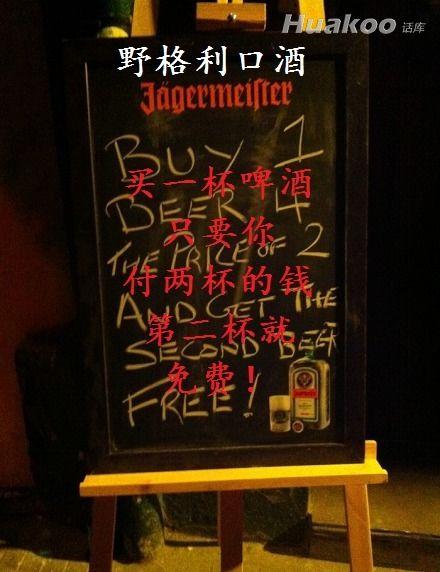 Huakoo 话库
野格利口酒
Jägermeister
BUY 1
买一杯啤酒
BEER 4
只要你
THE PRICE OF 2
付两杯的钱
AND GET THE
第二杯就
SECOND BEER
免费！
FREE!